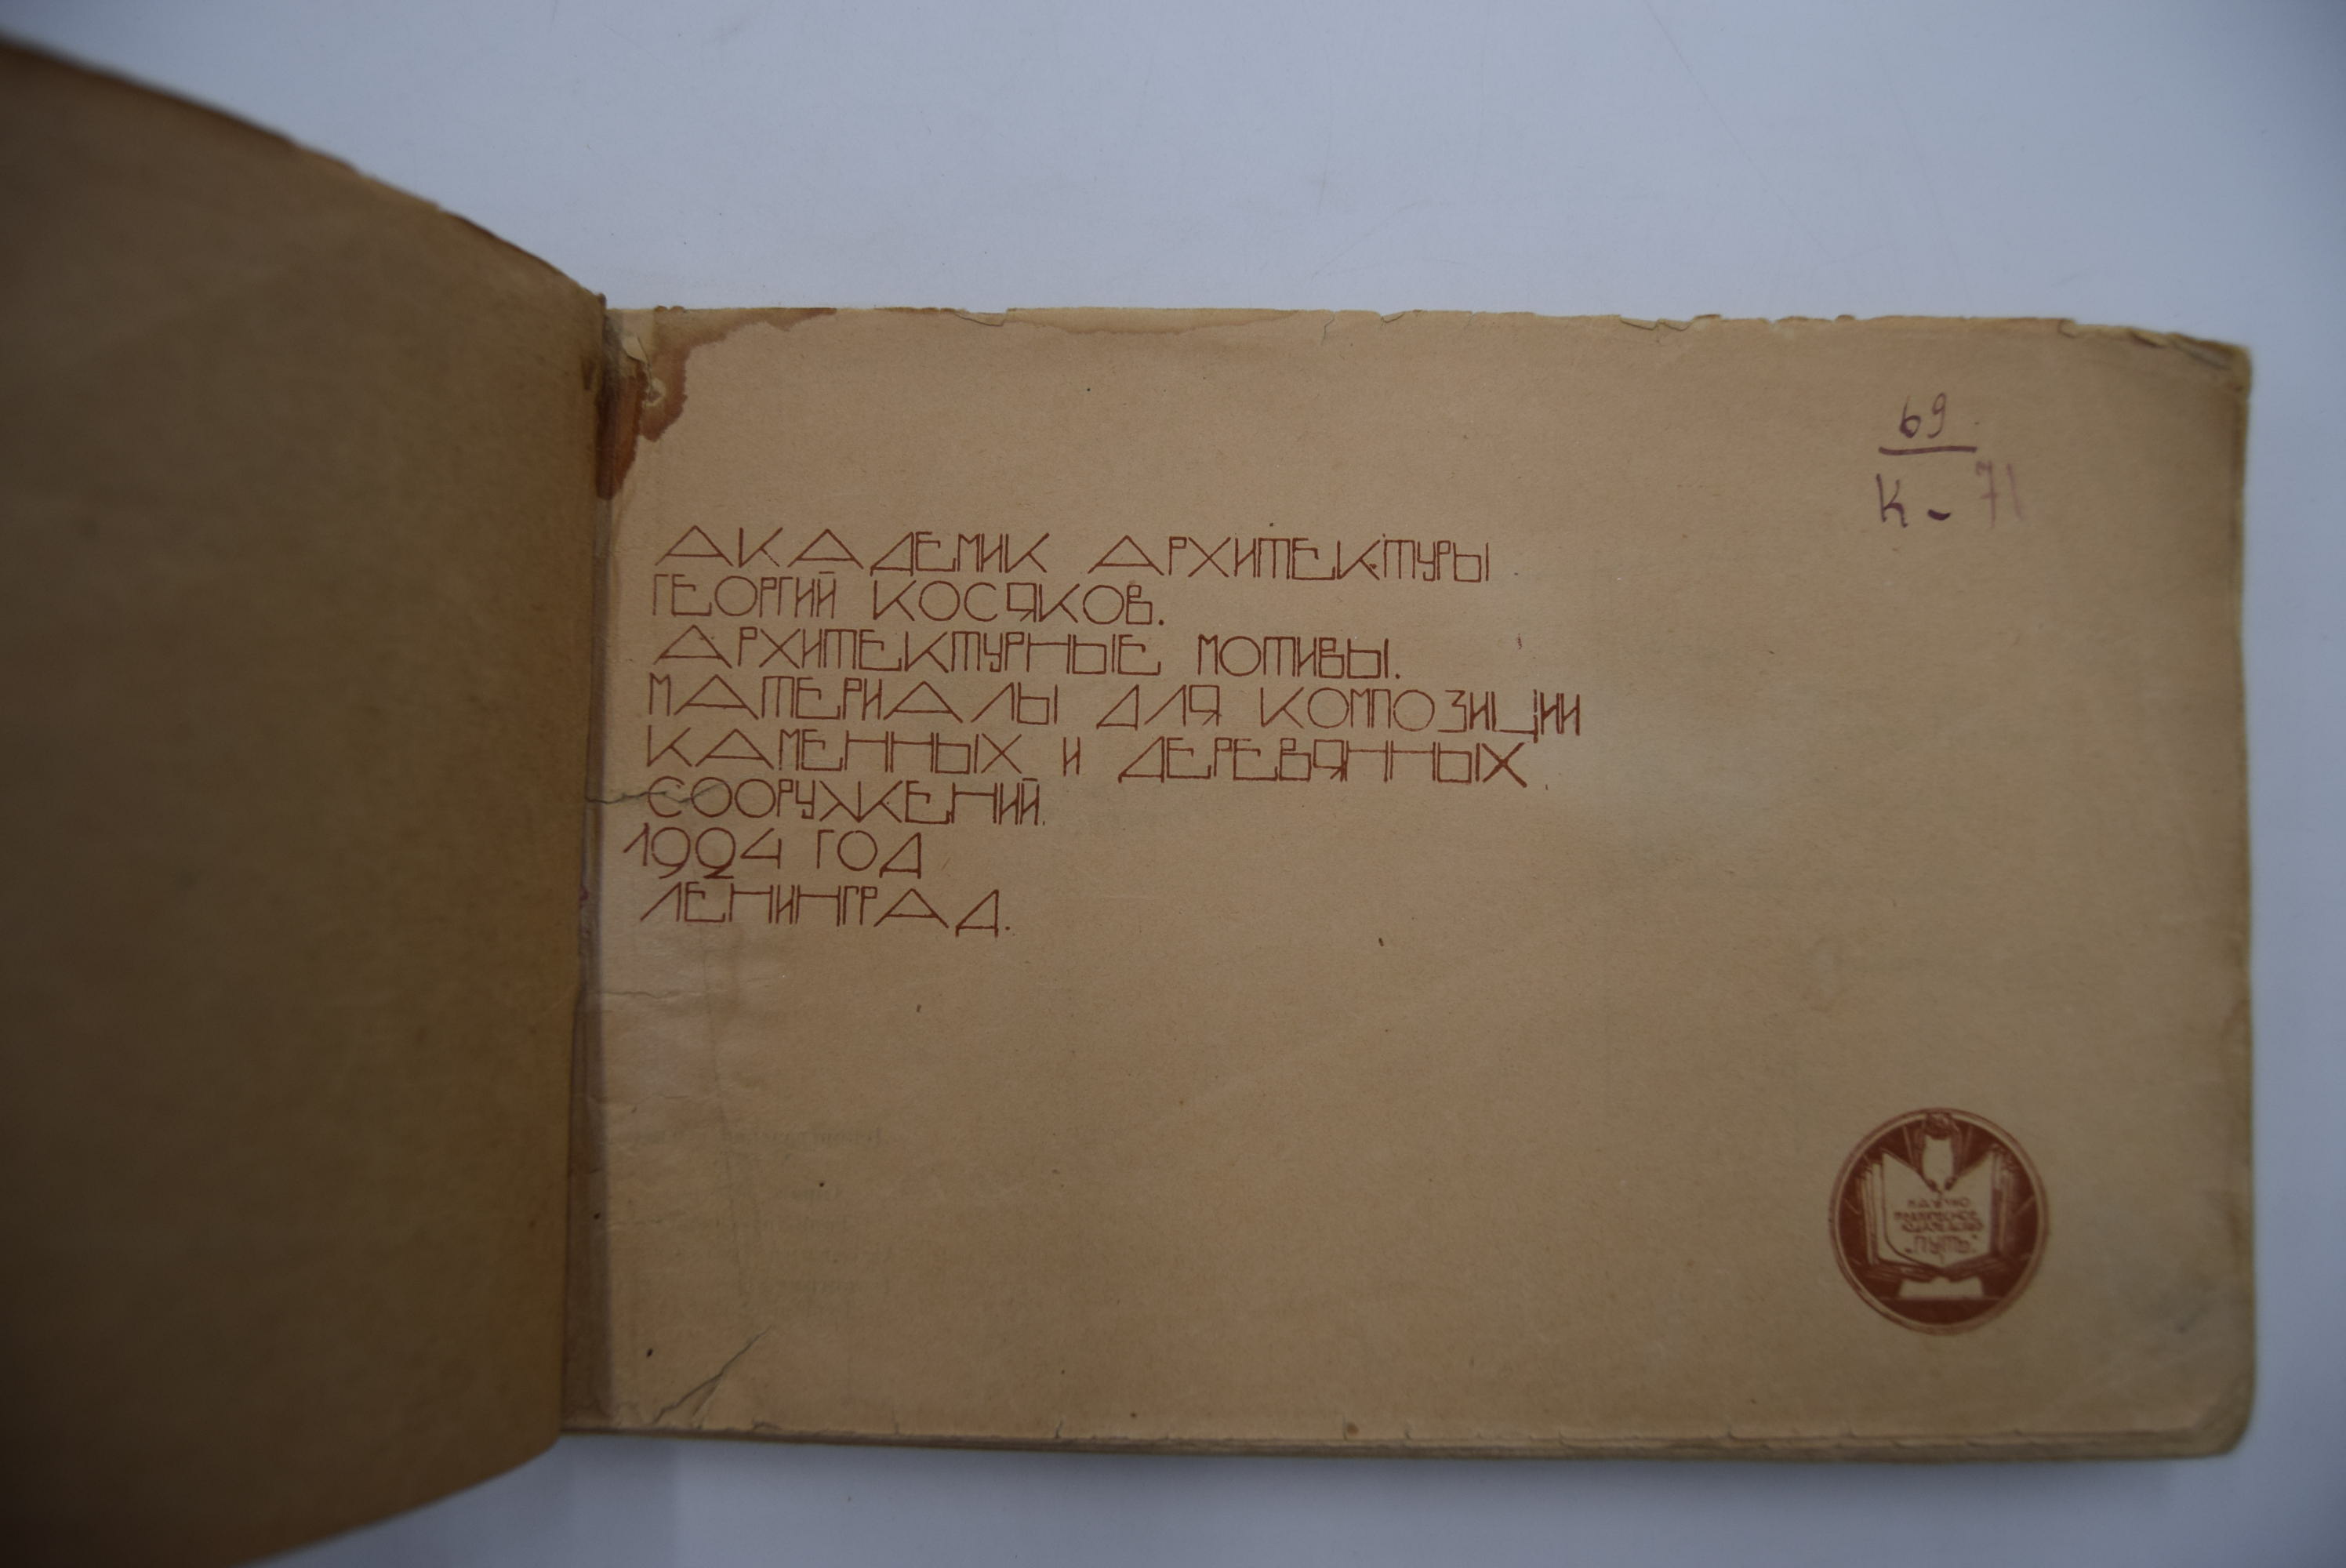 69
К - 71
АКАДЕМИК АРХИТЕКТУРЫ
ГЕОРГИЙ КОСЯКОВ.
АРХИТЕКТУРНЫЕ МОТИВЫ.
МАТЕРИАЛЫ ДЛЯ КОМПОЗИЦИИ
КАМЕННЫХ И ДЕРЕВЯННЫХ
СООРУЖЕНИЙ.
1924 ГОД
ЛЕНИНГРАД.
НАУЧНО
ИЗДАТЕЛЬСТВО
„ПУТЬ"